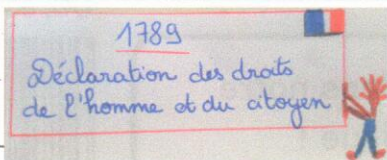 1789
Déclaration des droits
de l'homme et du citoyen